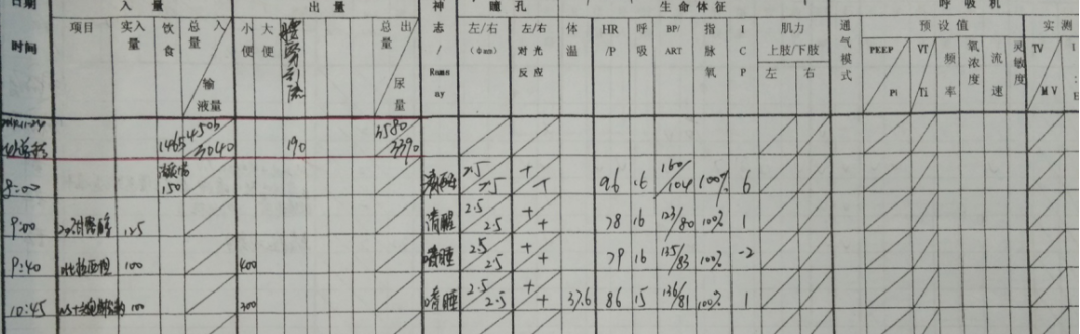 日期 入量 出量 神 瞳孔 生命体征 呼吸机
时间 项目 实入量 饮食 总入量 输液量 小便 大便 总出量 尿量 志/Ramsay 左/右(Φmm) 左/右对光反应 体温 HR/P 呼吸 BP/ART 指脉氧 ICP 肌力 上肢/下肢 左 右 通气模式 预设值 PEEP Pi VT Ti 频率 氧浓度 流速 灵敏度 实测 TV MV
1465 4505 3040 190 3580 3390
8:00 150 清醒 2.5 2.5 + + 96 16 160/104 100% 6
9:00 20%甘露醇 125 清醒 2.5 2.5 + + 78 16 123/80 100% 1
9:40 吡拉西坦 100 400 嗜睡 2.5 2.5 + + 79 16 135/83 100% -2
10:45 100 300 嗜睡 2.5 2.5 + + 37.6 86 15 136/81 100% 1